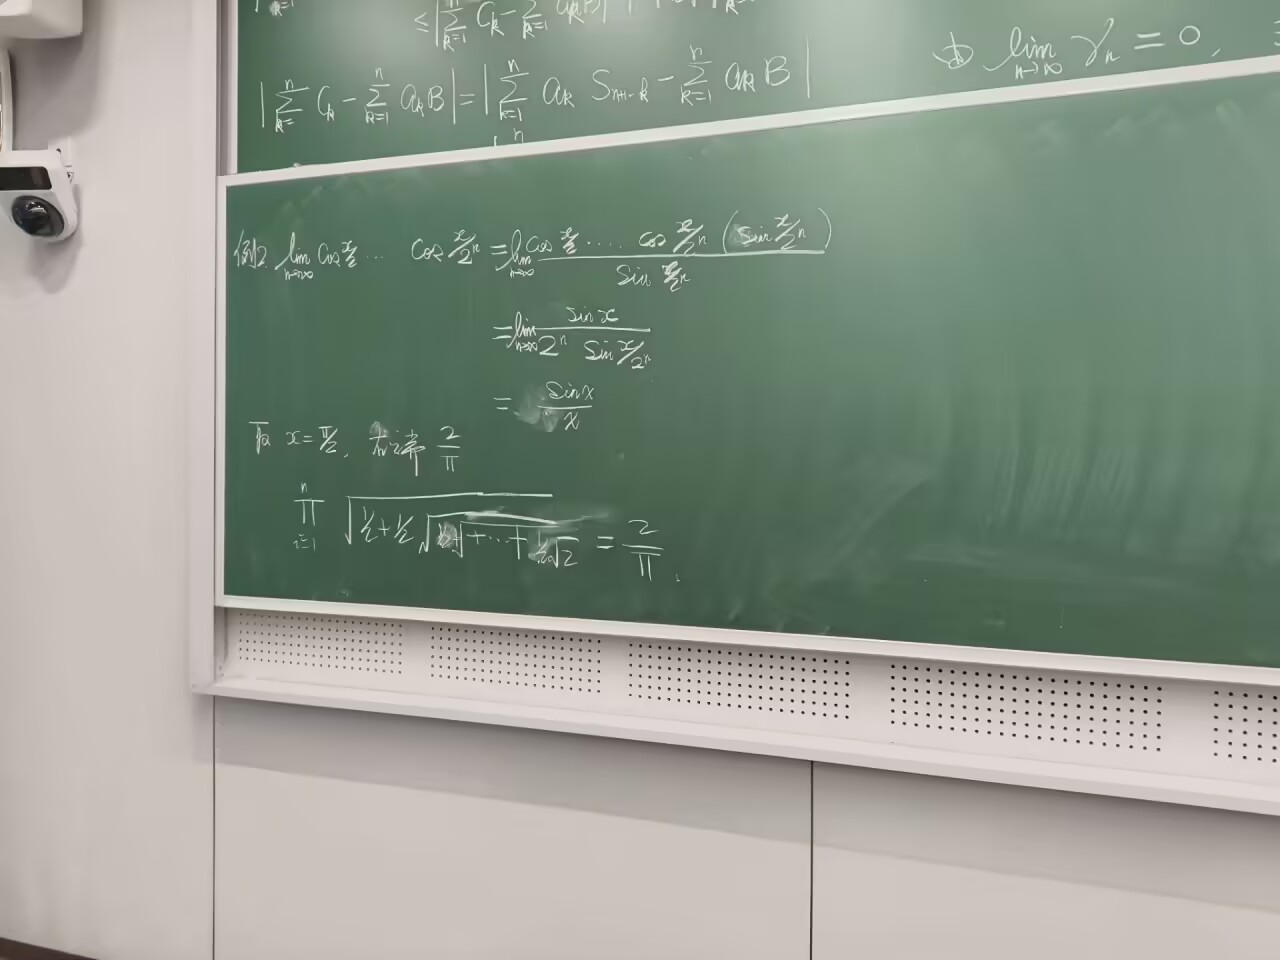 ≤|∑_{k=1}^{n} C_k - ∑_{k=1}^{n} a_k B|
|∑_{k=}^{n} C_k - ∑_{k=1}^{n} a_k B| = |∑_{k=1}^{n} a_k S_{n+1-k} - ∑_{k=1}^{n} a_k B|
由 lim_{n→∞} γ_n = 0,
n
例2. lim_{n→∞} cos x/2 ... cos x/2^n = lim_{n→∞} cos x/2 .... cos x/2^n (sin x/2^n) / sin x/2^n
= lim_{n→∞} sin x / 2^n sin x/2^n
= sin x / x
取 x = π/2, 右端 2/π
∏_{i=1}^{n} √(1/2 + 1/2 √(1/2 √ + ... + 1/2 √2)) = 2/π.